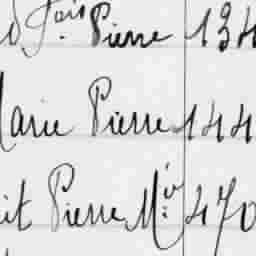 d fois Pierre 134
Marie Pierre 144
it Pierre Mie 470